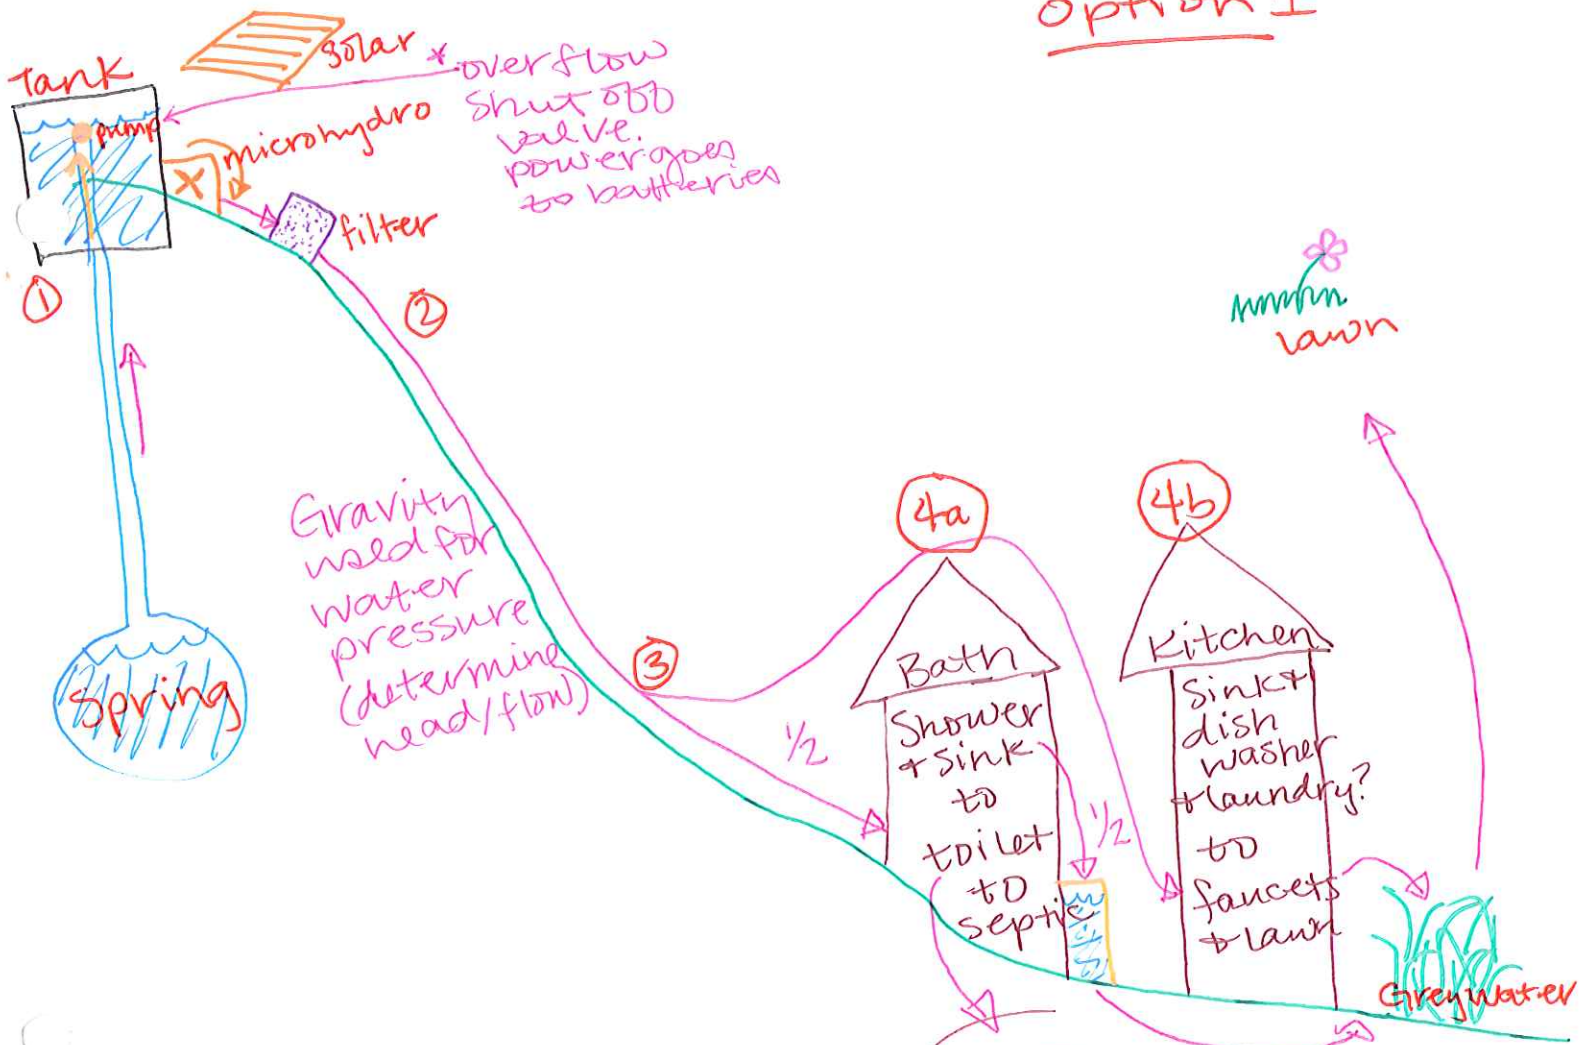 Option 1
Solar
Tank
* overflow
shut off
valve.
power goes
to batteries
pump
microhydro
X
filter
①
②
lawn
Gravity
used for
water
pressure
(determine
head/flow)
Spring
③
4a
4b
1/2
Bath
Shower
+ sink
to
toilet
to
septic
1/2
Kitchen
Sink +
dish
washer
+ laundry?
to
faucets
+ lawn
Greywater